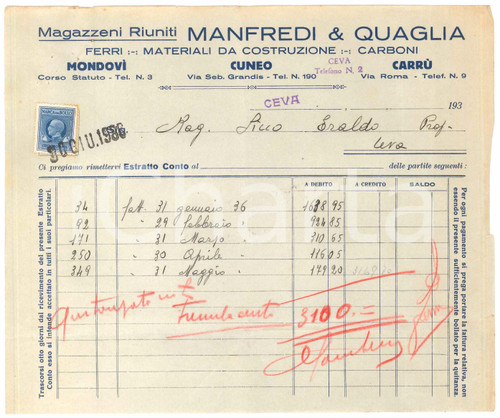 Magazzeni Riuniti MANFREDI & QUAGLIA
FERRI :-: MATERIALI DA COSTRUZIONE :-: CARBONI
MONDOVÌ CUNEO CARRÙ
Corso Statuto - Tel. N. 3 Via Seb. Grandis - Tel. N. 190 Via Roma - Telef. N. 9
CEVA
Telefono N. 2
CEVA 193
30 GIU. 1936
Rag. Sico Eraldo Prof.
Ceva
Ci pregiamo rimettervi Estratto Conto al delle partite seguenti:
A DEBITO A CREDITO SALDO
34 fatt. 31 gennaio 36 1638 95
92 " 29 febbraio " 924 85
171 31 Marzo 310 65
250 " 30 Aprile " 116 05
349 31 Maggio " 179 20
3100.=
Trascorsi otto giorni dal ricevimento del presente Estratto
Conto esso si intende accettato in tutti i suoi particolari.
Per ogni pagamento si prega portare la fattura relativa, non
essendo il presente sufficientemente bollato per la quitanza.